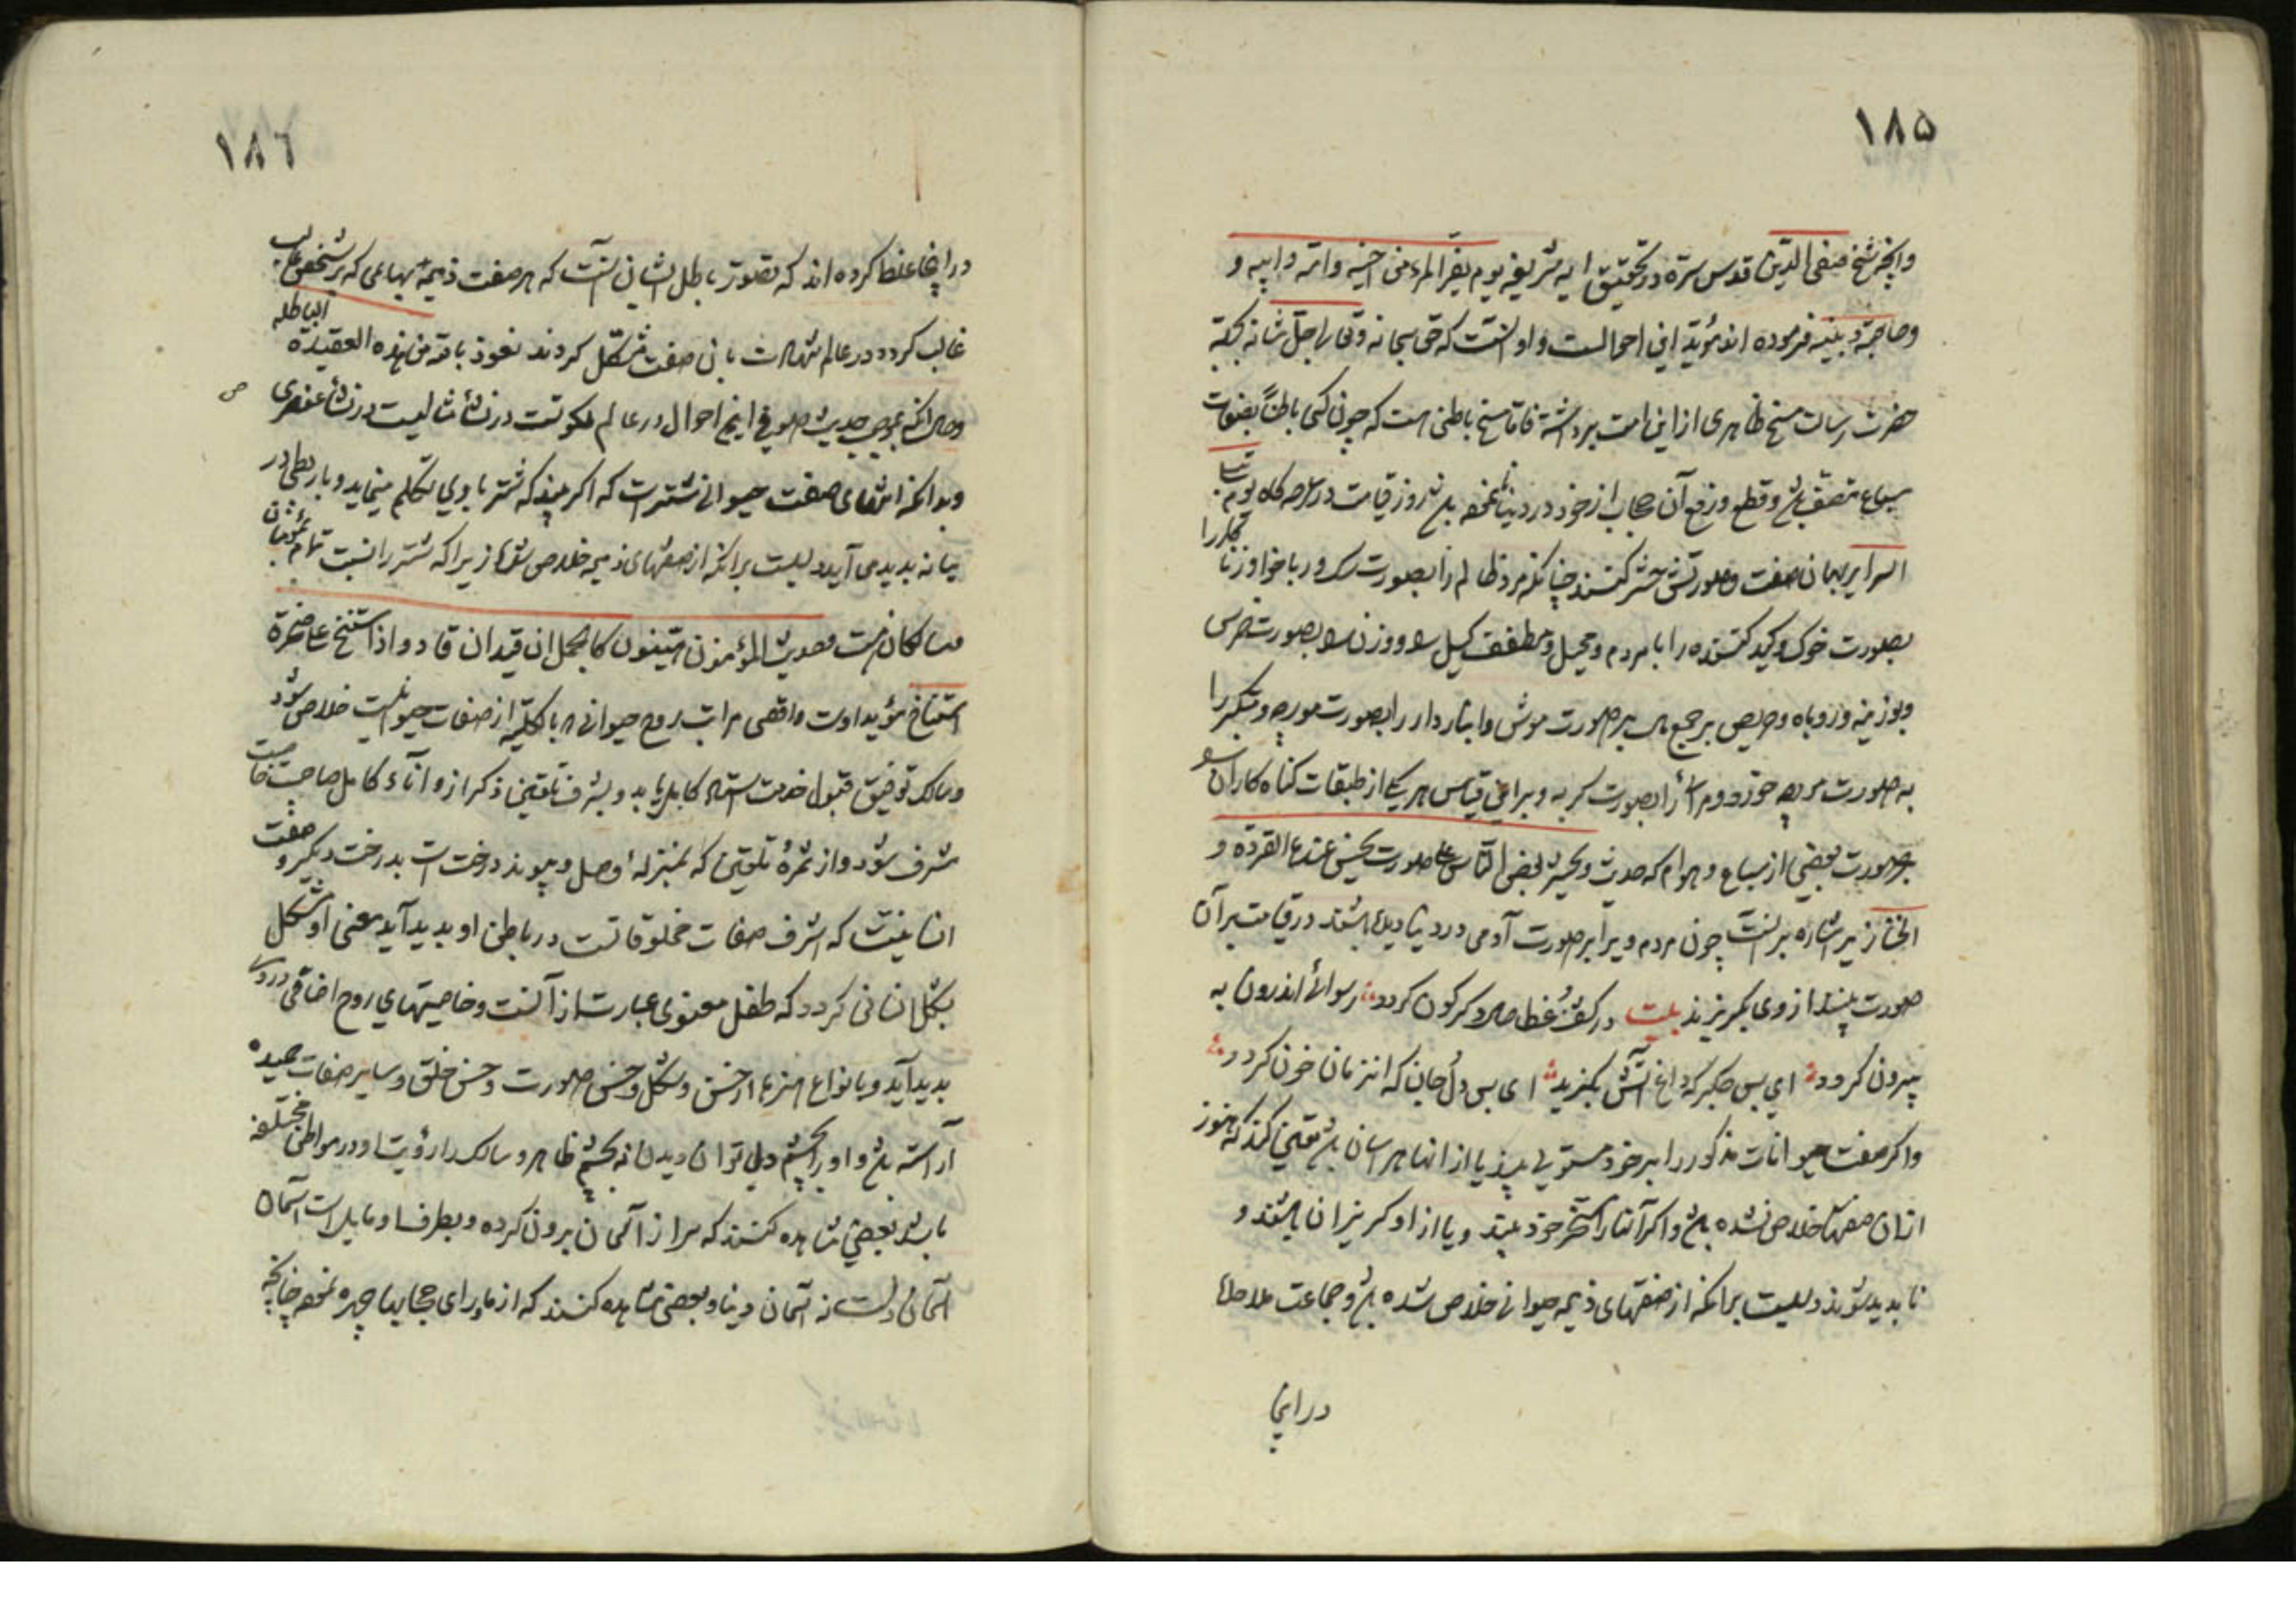 ١٨۵
وانچه شیخ صفی الدین قدوس سره در تحقیق ایه شریفه یوم یفر المرء من اخیه وامه وابیه و
وصاحبته وبنیه فرموده اند مؤید این احوالست و او آنست که حق سبحانه وتعالی جل شانه ببرکة
حضرت رسالت مسخ ظاهری از این امت برداشته فاما مسخ باطنی هست که چون کسی باطناً بصفات
سباع متصف باشد وقطع ورفع آن حجاب از خود در دنیا نکند باشد روز قیامت در عرصه کاه یوم تبلی
السرایر بهمان صفت وصورتش حشر کنند چنانکه مرد ظالم را بصورت سک و ربا خوار و زنا کار را
بصورت خوک و کید کننده را با مردم و محیل و مطفف کیل و وزن را بصورت خرس
وبوزینه وروباه وحریص بر جمع مال بر صورت موش وانباردار را بصورت مورچه ومتکبر را
به صورت مورچه خورد و مرائی را بصورت کربه وبراین قیاس هریکی از طبقات کناه کاران را
بر صورت بعضی از سباع و هوام که حدیث ویحشر بعض الناس علی صورت یحسن عندها القردة و
الخنازیر اشاره بر آنست چون مردم ویرا بر صورت آدمی در دنیا دیده باشند در قیامت بر آن
صورت بینند از وی بکریزند بیت در کشف غطا حال دکرکون کردد رسوائی اندرون به
بیرون کردد ای بس جکر که داغ آتش بکزید ای بس دل جان که انزمان خون کردد
واکر صفت حیوانات مذکور را بر خود مستولی بیند یا از انها هراسان باشد یقین کند که هنوز
ازان صفتها خلاص نشده باشد واکر آنها را مسخر خود بیند ویا از او کریزان باشند و
نابدید شوند دلیلست برانکه از صفتهای ذمیمه حیوانی خلاص شده باشد وجماعت ملاحده
در اینجا
١٨٦
در اینجا غلط کرده اند که تصور باطل ایشان آنست که هر صفت ذمیمه بهایمی که بر شخصی غالب
غالب کردد در عالم شهادت بان صفت متشکل کردند نعوذ بالله من هذه العقیدة الباطله
وحال انکه بموجب حدیث صلوة اینجا احوال در عالم ملکوتست در نشأ مثالیست در نشأ عنصری
وبدانکه اشقای صفت حیوانی شترست که اکر بیند که شتر با وی تکلم مینماید وبا ربطی در
میانه بدید می آید دلیلست برانکه از صفتهای ذمیمه خلاص شود زیرا که شتر را نسبت تمام بمؤمنان
سالکان هست حدیث المؤمنون هینون کالجمل ان قید انقاد و اذا استنخ علی صخرة
استناخ مؤید اوست واقصی مراتب روح حیوانی بالکلیه از صفات حیوانیت خلاص شود
وسالک توفیق قبول خدمت استاد کامل یابد وبشرف تلقین ذکر از و اناء کامل صاحب
شرف شود واز ثمرهٔ تلقین که بمنزله وصل و پیوند درخت است بدرخت دیکر و صفت
انسانیت که اشرف صفات مخلوقاتست در باطن او بدید آید معنی او متشکل
بشکل انسانی کردد که طفل معنوی عبارت از آنست وخاصیتهای روح اضافی در وی
بدید آید وبانواع هنرها از حسن وشکل و حسن صورت وحسن خلق وسایر صفات حمیده
آراسته باشد واو را بچشم دل توان دیدن نه بچشم ظاهر وسالک را رؤیت او در مواطن مختلفه
باشد بعضی مشاهده کنند که سر از آسمان برون کرده وبطرف او مایل است آسمان
آسمان دلست نه آسمان دنیا وبعضی مشاهده کنند که از ماورای حجابها چهره نموده چنانکه